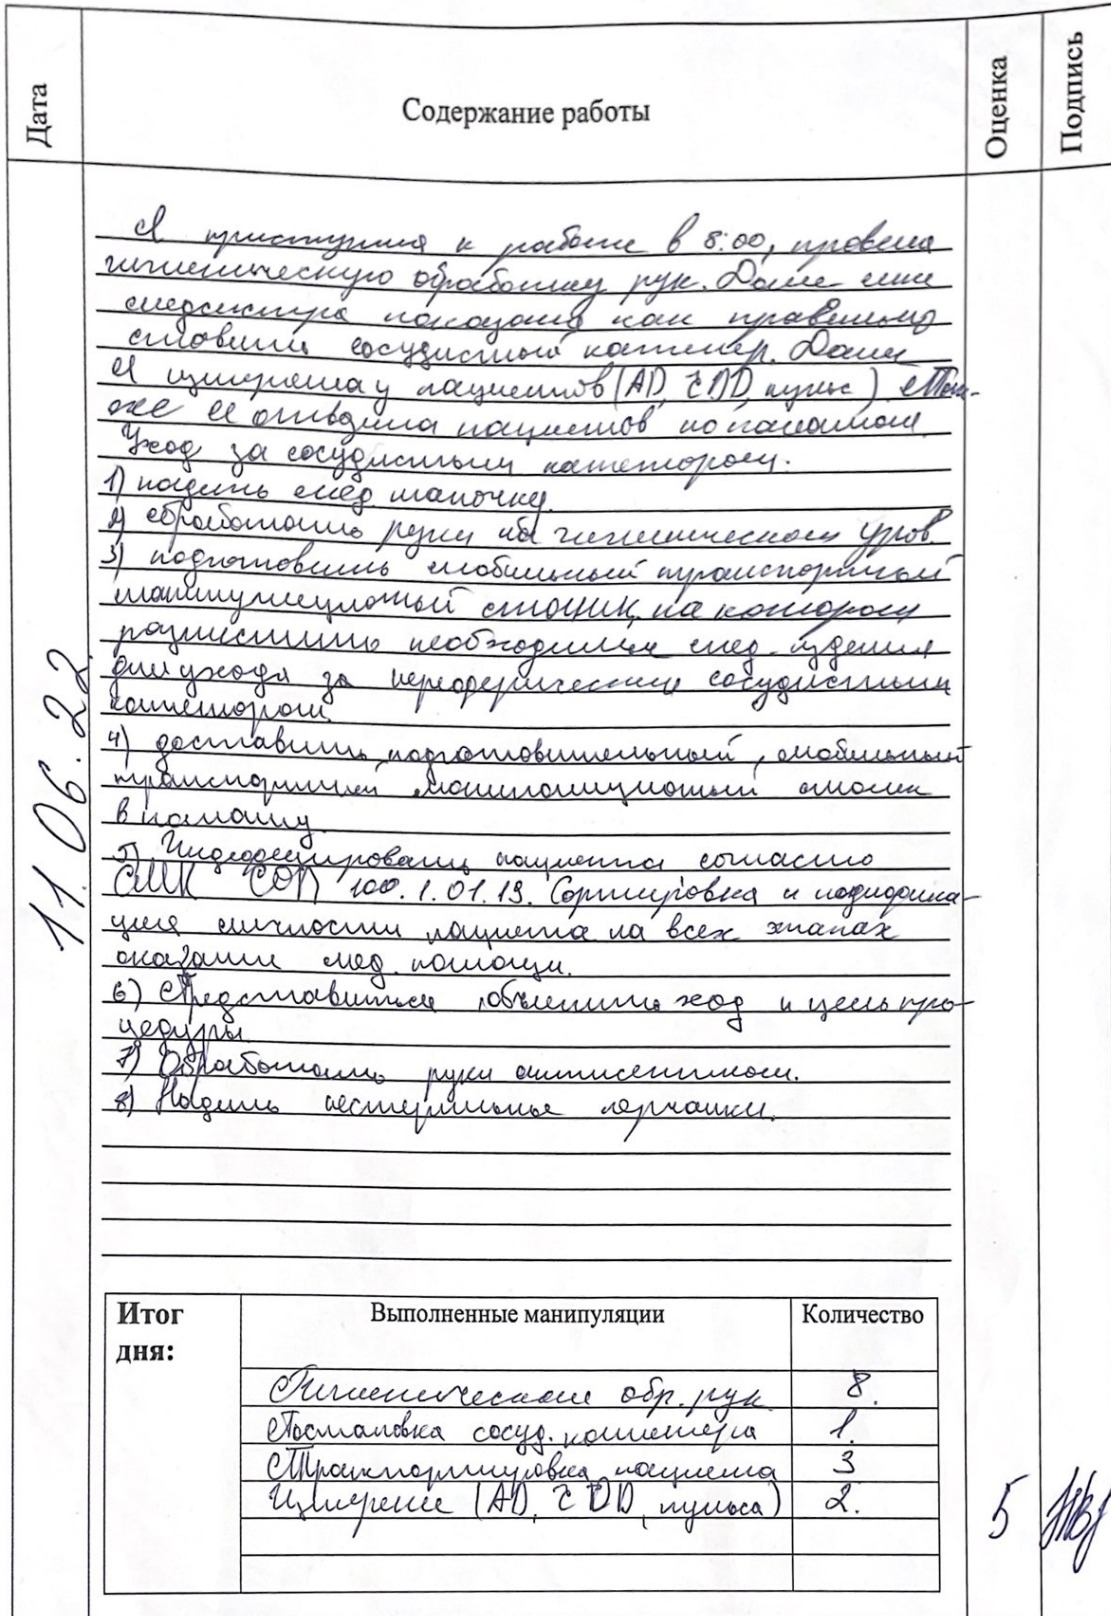 Дата
Содержание работы
Оценка
Подпись
11.06.22
Я приступила к работе в 8:00, провела
гигиеническую обработку рук. Далее мне
медсестра показала как правильно
ставить сосудистый катетер. Далее
Я измерила у пациентов (АД, ЧДД, пульс). Так-
же я отводила пациентов по палатам.
Уход за сосудистым катетором.
1) надеть мед. шапочку.
2) обработать руки на гигиеническом уров.
3) подготовить мобильный транспортный
манипуляционный столик, на котором
разместить необходимые мед. изделия
для ухода за переферическим сосудистым
катетором.
4) доставить подготовительный, мобильный
транспортный манипуляционный столик
в палату.
5) пациента согласно
СМК СОП 100.1.01.19. Сортировка и
ция личности пациента на всех этапах
оказания мед. помощи.
6) Представиться, объяснить ход и цель про-
цедуры
7) Обработать руки антисептиком.
8) Надеть нестерильные перчатки.
Итог дня:
Выполненные манипуляции
Количество
Гигиеническая обр. рук 8.
Постановка сосуд. катетера 1.
Транспортировка пациента 3
Измерение (АД, ЧДД, пульса) 2.
5